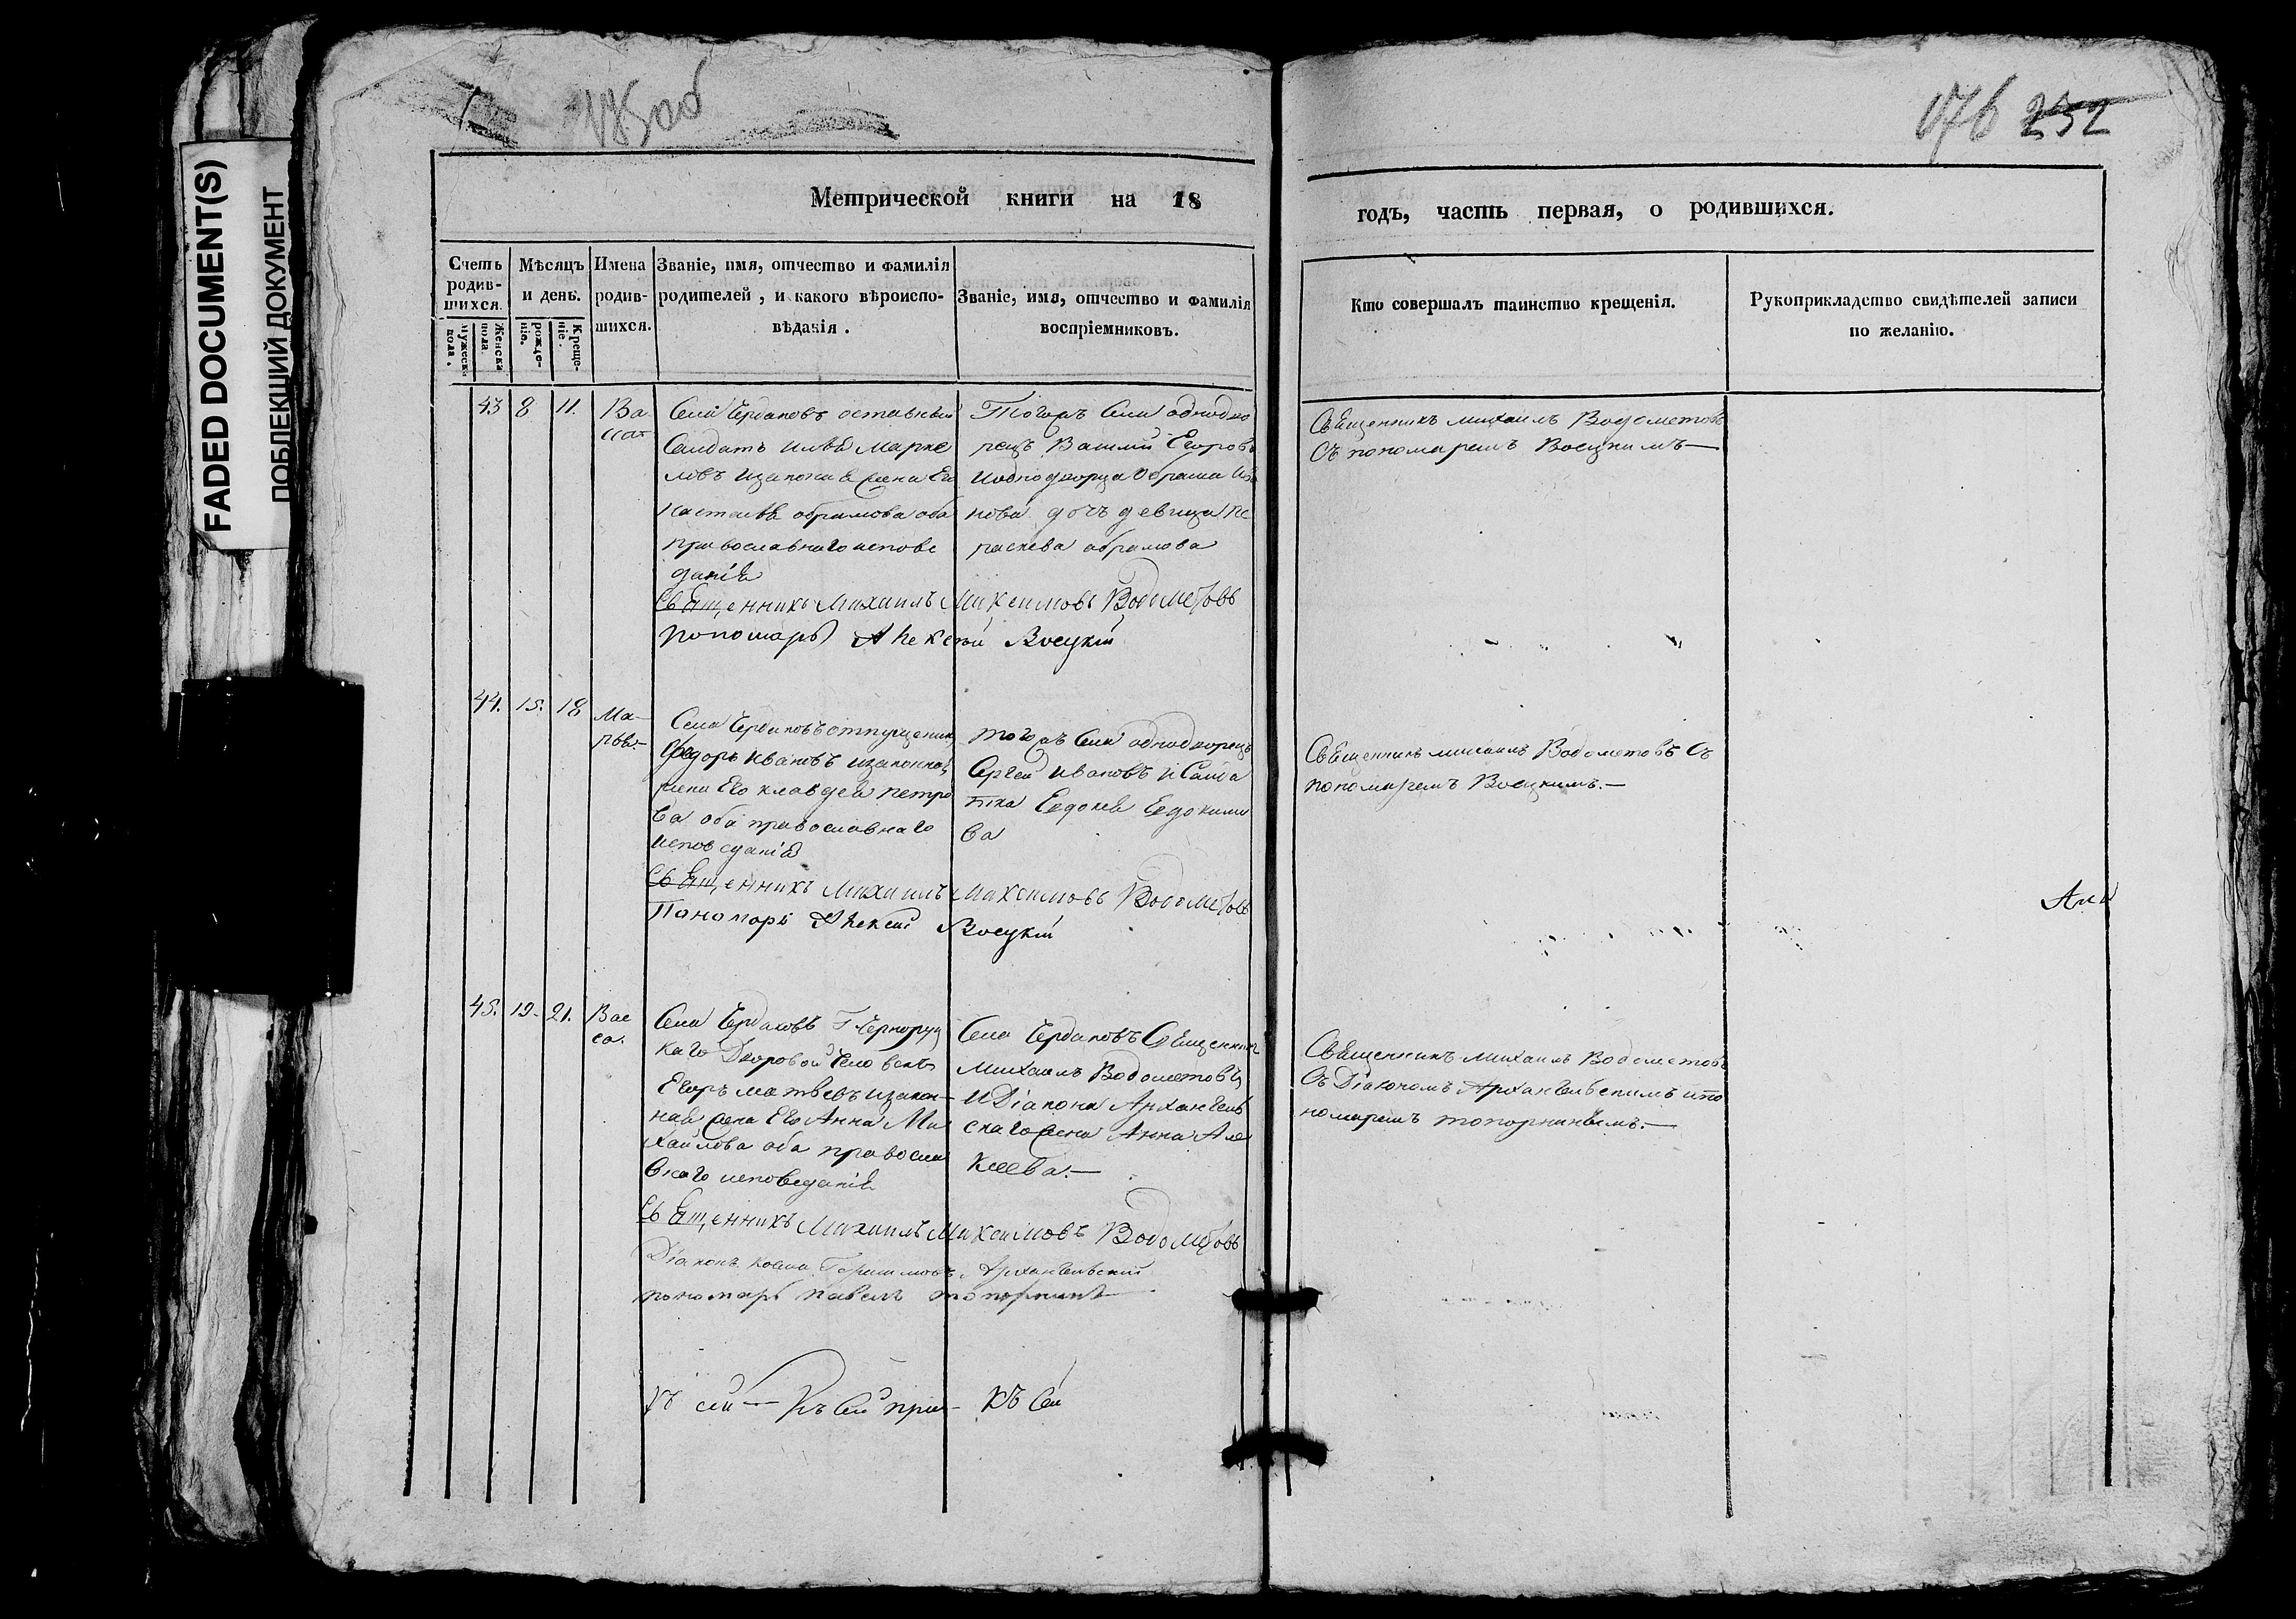 FADED DOCUMENT(S)
ПОБЛЕКЩИЙ ДОКУМЕНТ
175об
176 232
Метрической книги на 18
годъ, часть первая, о родившихся.
Счетъ родив-шихся.
Мужеска пола.
Женска пола.
Мѣсяцъ и день.
рожде-ніе.
Креще-ніе.
Имена родив-шихся.
Званіе, имя, отчество и фамилія родителей, и какого вѣроиспо-вѣданія.
Званіе, имя, отчество и фамилія воспріемниковъ.
Кто совершалъ таинство крещенія.
Рукоприкладство свидѣтелей записи по желанію.
43 8 11.
Ва
сса
Села Чердаковъ оставныи
Салдатъ Марке
ловъ Изаконая жена Ево
обрамова оба
православнаго испове
данія
Тогожъ Села однодво
рецъ Василий Егоровъ
Иоднодворца Обрама Ива
нова дочъ девица Па
раскева абрамова
Священникъ михаилъ Водометовъ
Съ пономаремъ Восцкимъ
Священникъ Михаилъ Максимовъ Водометовъ
пономарь Алексѣй Восцкій
44. 15. 18
Ма-
рѳа
Села Чердаковъ отпущеникъ
Федоръ Ивановъ изаконная
жена Ево клавдея петро
ва оба православнаго
исповеданія
тогожъ Села однодворецъ
Сергей ивановъ и Салда
тка Евдокея Евдокимо
ва
Священникъ михаилъ Водометовъ Съ
пономаремъ Восцкимъ.
Священникъ Михаилъ Максимовъ Водометовъ
Пономарь Алексей Восцкій
45. 19. 21.
Вас
са.
Села Чердаковъ Г
каго Дворовой Человекъ
Егоръ матвевъ изакон-
ная жена Ево Анна Ми
хаилова оба православ
внаго исповеданія
Села Чердаковъ Священникъ
Михаилъ Водометовъ
И Діакона Архангель
скаго жена Анна Але
ксеева.
Священникъ михаилъ Водометовъ
Съ Діакономъ Архангельскимъ ипо
номаремъ топорнинымъ.
Священникъ Михаилъ Максимовъ Водометовъ
Діаконъ Косма Герасимовъ Архангельскій
пономарь павелъ топорнинъ
къ сей Къ Сей при- Къ Сей